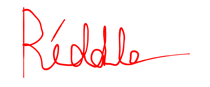 Réddle